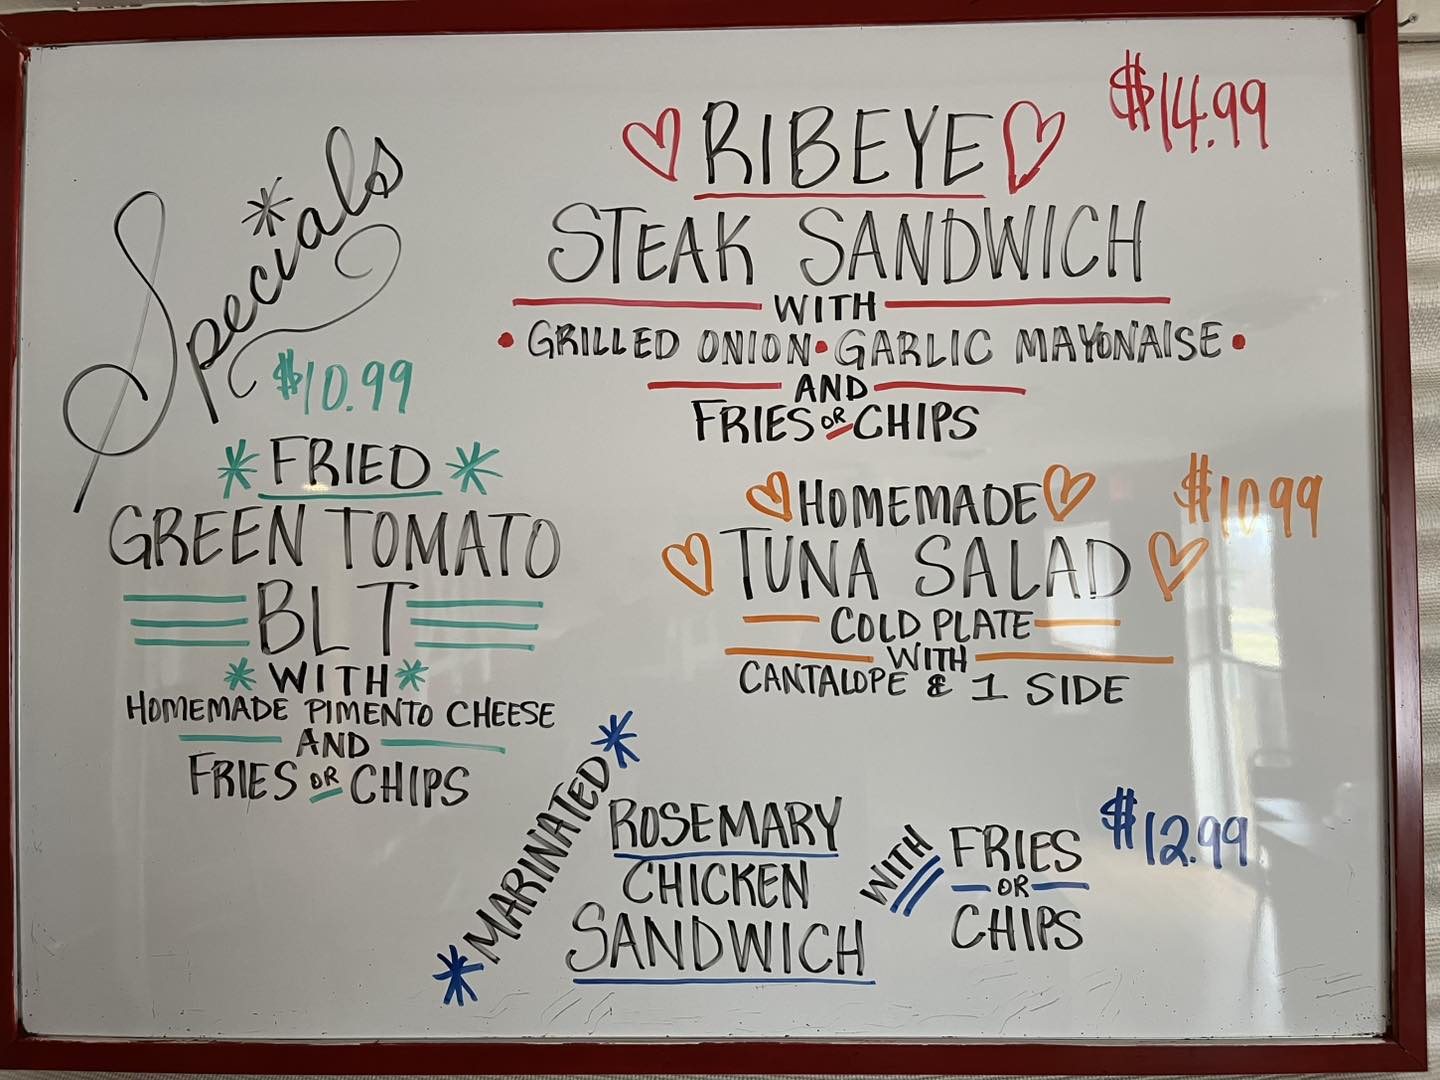 Specials
$10.99
FRIED
GREEN TOMATO
BLT
WITH
HOMEMADE PIMENTO CHEESE
AND
FRIES OR CHIPS
$14.99
RIBEYE
STEAK SANDWICH
WITH
• GRILLED ONION • GARLIC MAYONAISE •
AND
FRIES OR CHIPS
$10.99
HOMEMADE
TUNA SALAD
COLD PLATE
WITH
CANTALOPE & 1 SIDE
MARINATED
ROSEMARY
CHICKEN
SANDWICH
WITH
FRIES
OR
CHIPS
$12.99